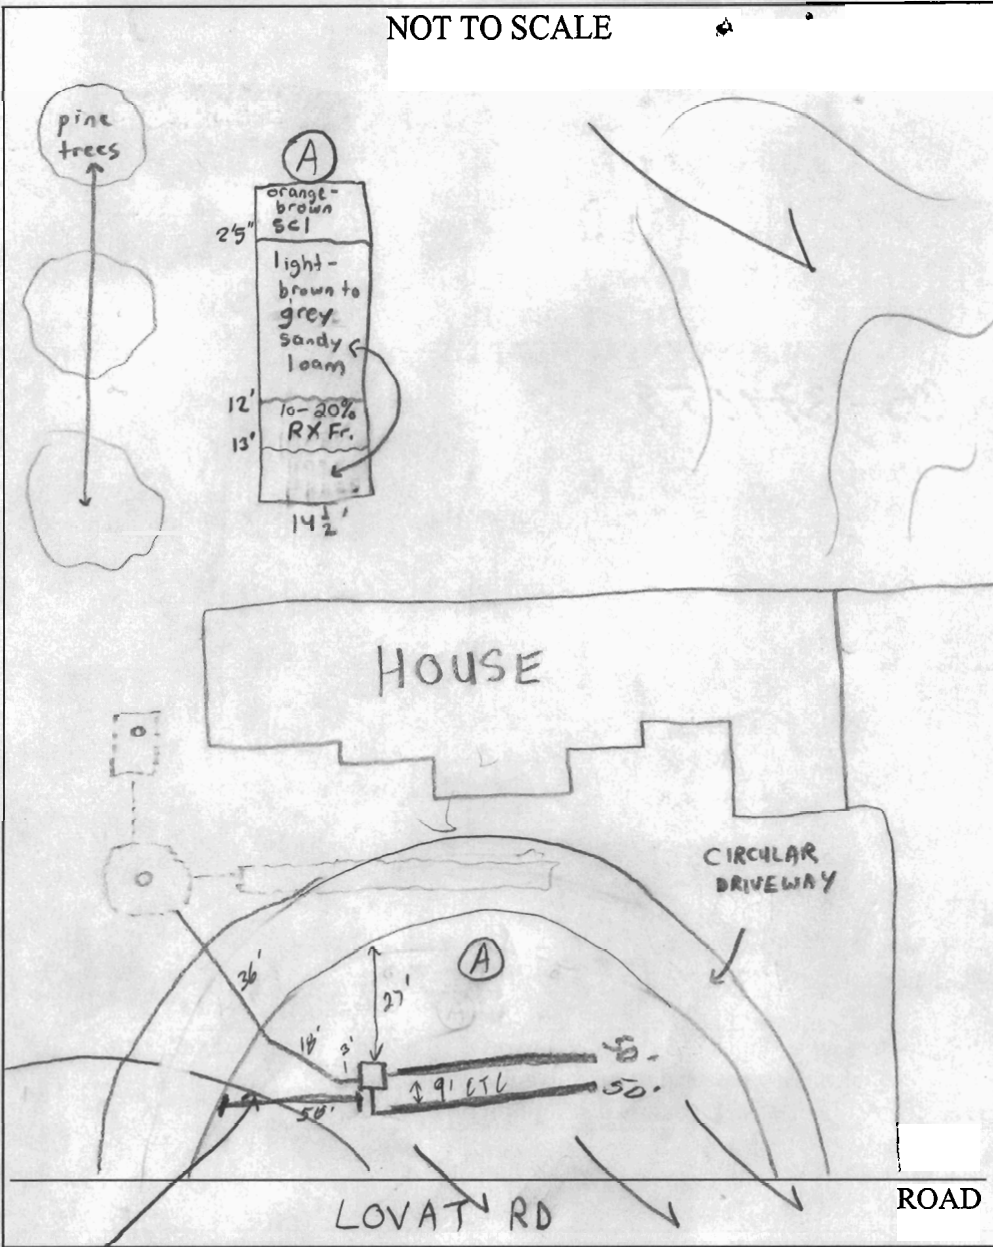 NOT TO SCALE
pine
trees
A
orange-
brown
scl
2'5"
light-
brown to
grey
sandy
loam
12'
10-20%
RX Fr.
13'
14 1/2'
HOUSE
CIRCULAR
DRIVEWAY
A
36'
27'
18'
3'
9' CTC
50'
50'
LOVAT RD
ROAD